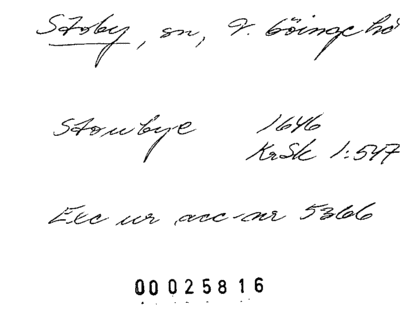 Stoby, sn, V. Göinge hd
Stoubye 1646
KrSk 1:547
Exc ur acc-nr 5366
00025816